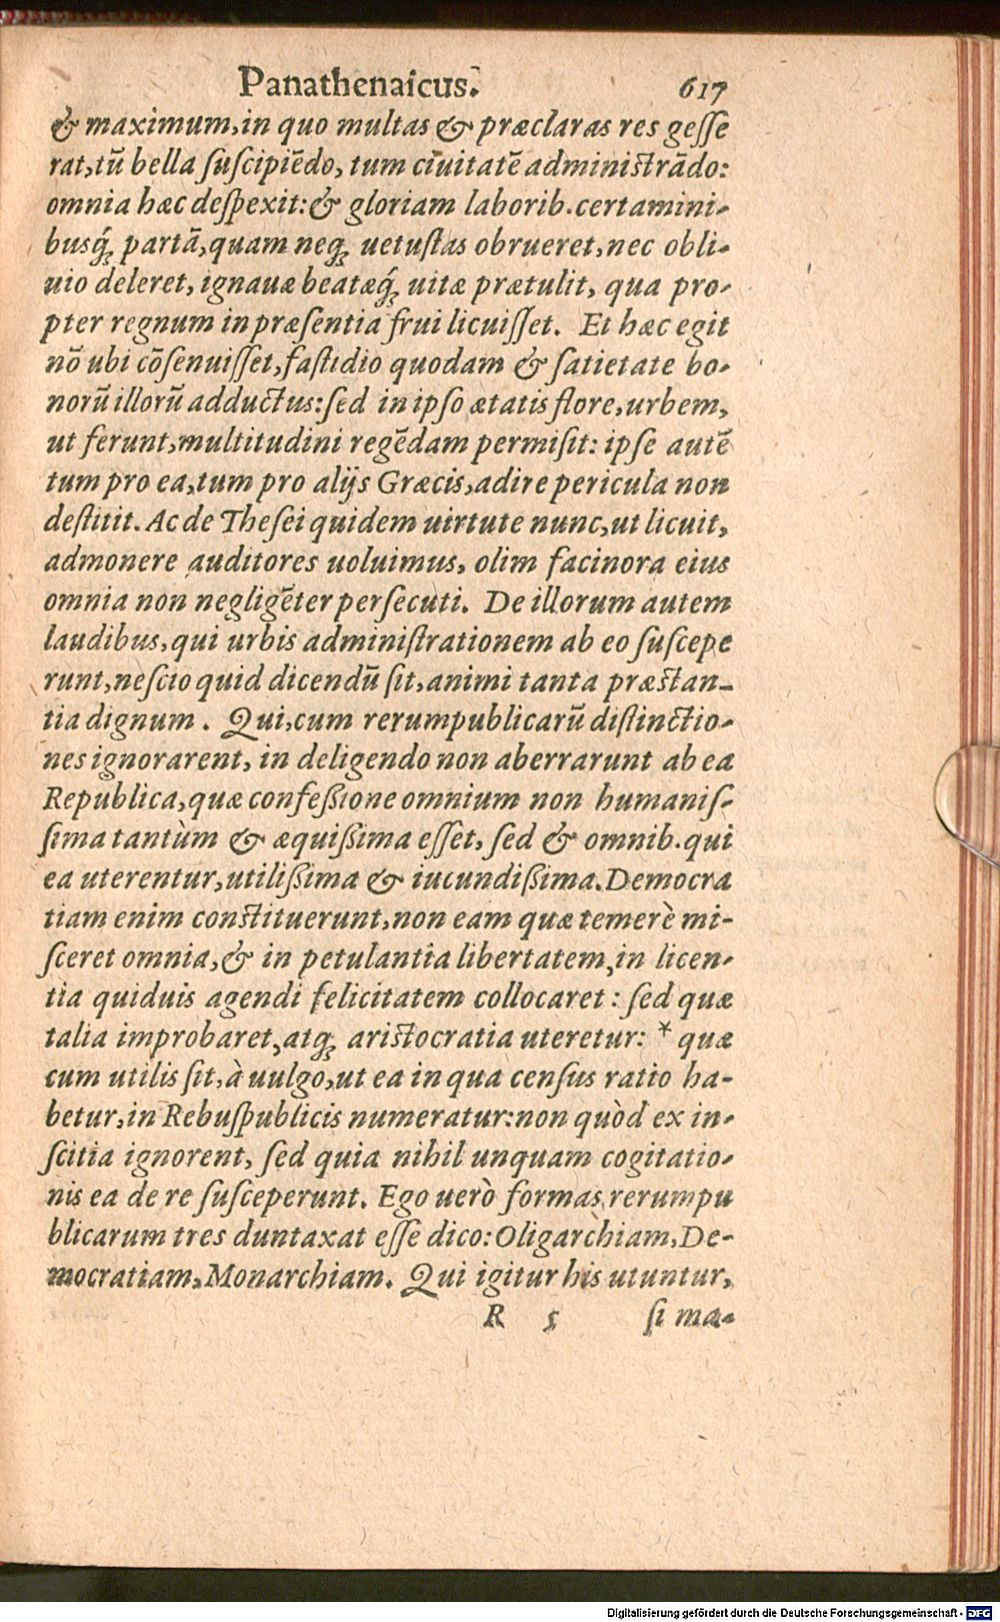 Panathenaicus. 617
& maximum, in quo multas & præclaras res geſſe
rat, tū bella ſuſcipiēdo, tum ciuitatē adminiſtrādo:
omnia hæc deſpexit: & gloriam laborib. certamini-
busq́; partā, quam neq; uetuſtas obrueret, nec obli-
uio deleret, ignauæ beatæq́; uitæ prætulit, qua pro-
pter regnum in præſentia frui licuiſſet. Et hæc egit
nō ubi cōſenuiſſet, faſtidio quodam & ſatietate bo-
norū illorū adductus: ſed in ipſo ætatis flore, urbem,
ut ferunt, multitudini regēdam permiſit: ipſe autē
tum pro ea, tum pro alijs Græcis, adire pericula non
deſtitit. Ac de Theſei quidem uirtute nunc, ut licuit,
admonere auditores uoluimus, olim facinora eius
omnia non negligēter perſecuti. De illorum autem
laudibus, qui urbis adminiſtrationem ab eo ſuſcepe
runt, neſcio quid dicendū ſit, animi tanta præſtan-
tia dignum. Qui, cum rerumpublicarū diſtinctio-
nes ignorarent, in deligendo non aberrarunt ab ea
Republica, quæ confeßione omnium non humaniſ-
ſima tantùm & æquißima eſſet, ſed & omnib. qui
ea uterentur, utilißima & iucundißima. Democra
tiam enim conſtituerunt, non eam quæ temerè mi-
ſceret omnia, & in petulantia libertatem, in licen-
tia quiduis agendi felicitatem collocaret: ſed quæ
talia improbaret, atq; ariſtocratia uteretur: * quæ
cum utilis ſit, à uulgo, ut ea in qua cenſus ratio ha-
betur, in Rebuſpublicis numeratur: non quòd ex in-
ſcitia ignorent, ſed quia nihil unquam cogitatio-
nis ea de re ſuſceperunt. Ego uerò formas rerumpu
blicarum tres duntaxat eſſe dico: Oligarchiam, De-
mocratiam, Monarchiam. Qui igitur his utuntur,
R 5 ſi ma-
Digitalisierung gefördert durch die Deutsche Forschungsgemeinschaft - DFG